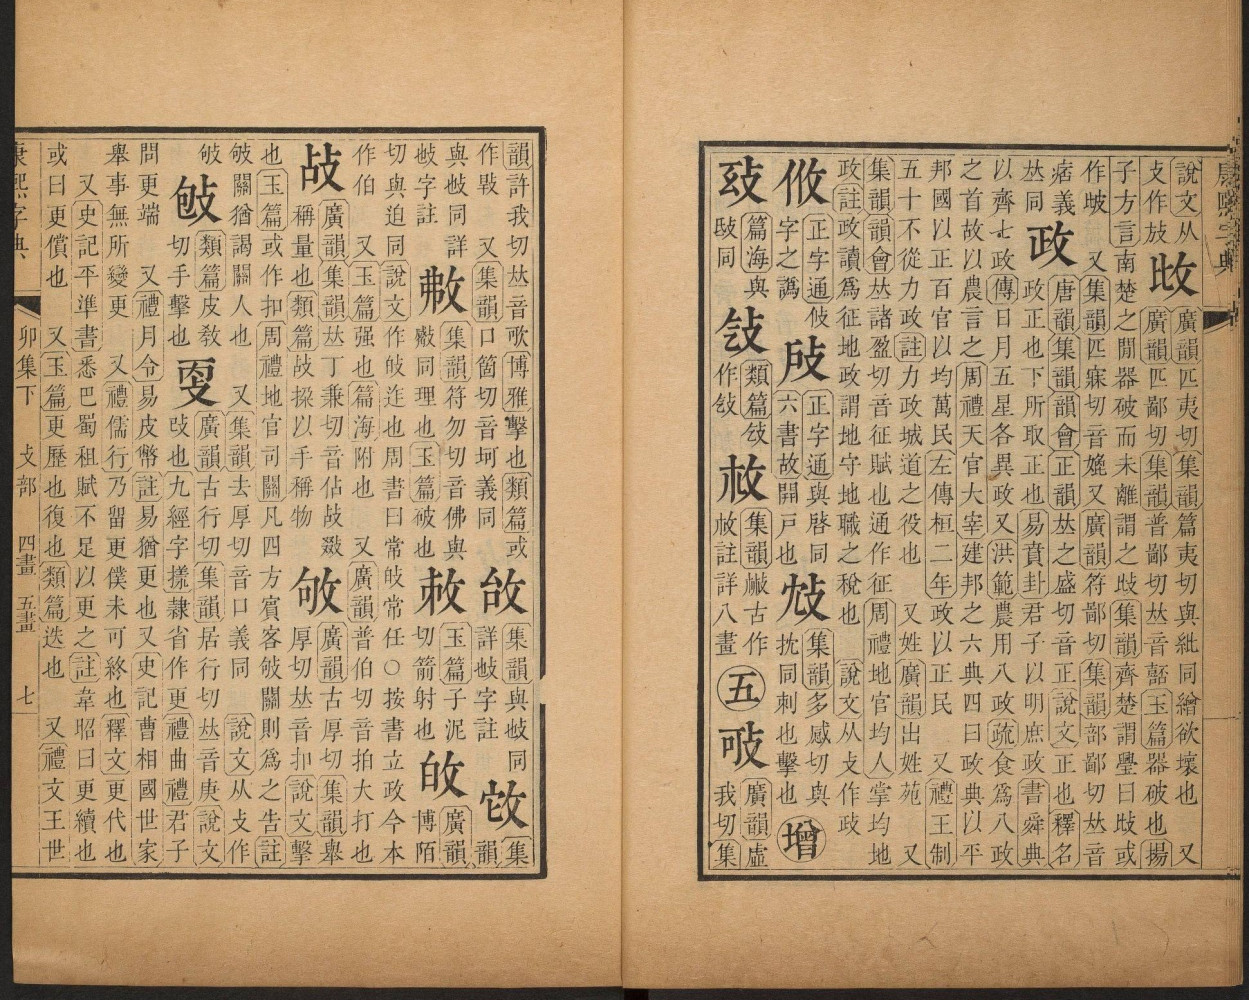 康熙字典
說文从
攴作㱟
廣韻匹夷切集韻篇夷切與紕同繒欲壞也 又
廣韻匹鄙切集韻普鄙切𠀤音嚭玉篇器破也揚
子方言南楚之閒器破而未離謂之㱟集韻齊楚謂璺曰㱟或
作岥 又集韻匹寐切音㜑又廣韻符鄙切集韻部鄙切𠀤音
痞義
𠀤同
政
唐韻集韻韻會正韻𠀤之盛切音正說文正也釋名
政正也下所取正也易賁卦君子以明庶政書舜典
以齊七政傳日月五星各異政又洪範農用八政疏食爲八政
之首故以農言之周禮天官大宰建邦之六典四曰政典以平
邦國以正百官以均萬民左傳桓二年政以正民 又禮王制
五十不從力政註力政城道之役也 又姓廣韻出姓苑 又
集韻韻會𠀤諸盈切音征賦也通作征周禮地官均人掌均地
政註政讀爲征地政謂地守地職之稅也 說文从攴作政
攸
正字通俗
字之譌
正字通與啓同
六書故開戶也
集韻多感切與
抌同刺也擊也
增
篇海與
㱾同
敆
類篇敆
作敆
集韻龣古作
註詳八畫
五
㪃
廣韻虛
我切集
韻許我切𠀤音歌博雅擊也類篇或
作㪃 又集韻口箇切音坷義同
集韻與㪃同
詳㪃字註
集韻
與㪃同詳
㪃字註
集韻符勿切音佛與
㪃同理也玉篇破也
玉篇子泥
切箭射也
敀
廣韻博陌
切與迫同說文作敀迮也周書曰常敀常任○按書立政今本
作伯 又玉篇强也篇海附也 又廣韻普伯切音拍大打也
敁
廣韻集韻𠀤丁兼切音佔敁敠
稱量也類篇敁挅以手稱物
敂
廣韻古厚切集韻舉
厚切𠀤音扣說文擊
也玉篇或作扣周禮地官司關凡四方賓客敂關則爲之告註
敂關猶謁關人也 又集韻去厚切音口義同 說文从攴作
敂
㿱
類篇皮敎
切手擊也
㪅
廣韻古行切集韻居行切𠀤音庚說文
改也九經字㨾隸省作更禮曲禮君子
問更端 又禮月令易皮幣註易猶更也又史記曹相國世家
舉事無所變更 又禮儒行乃留更僕未可終也釋文更代也
又史記平準書悉巴蜀租賦不足以更之註韋昭曰更續也
或曰更償也 又玉篇更歷也復也類篇迭也 又禮文王世
康熙字典 卯集下 攴部 四畫 五畫 七